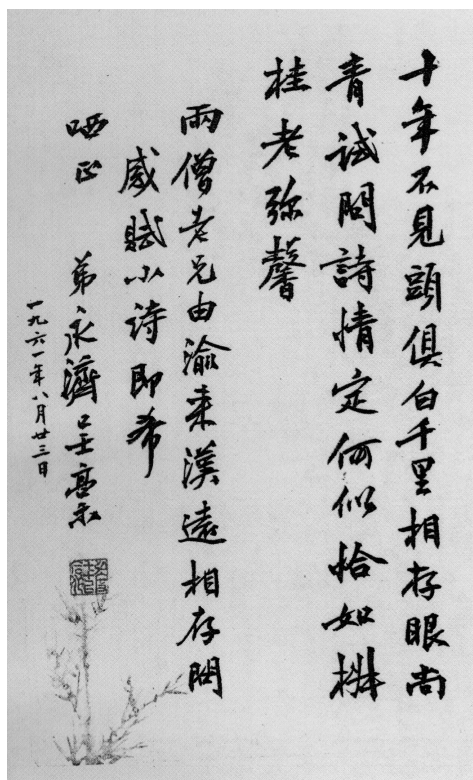 十年不見頭俱白千里相存眼尚
青試問詩情定何似恰如椒
桂老弥馨
兩僧老兄由渝来漢遠相存問
感賦小詩即希
哂正 弟永濟呈
一九六一年八月廿三日